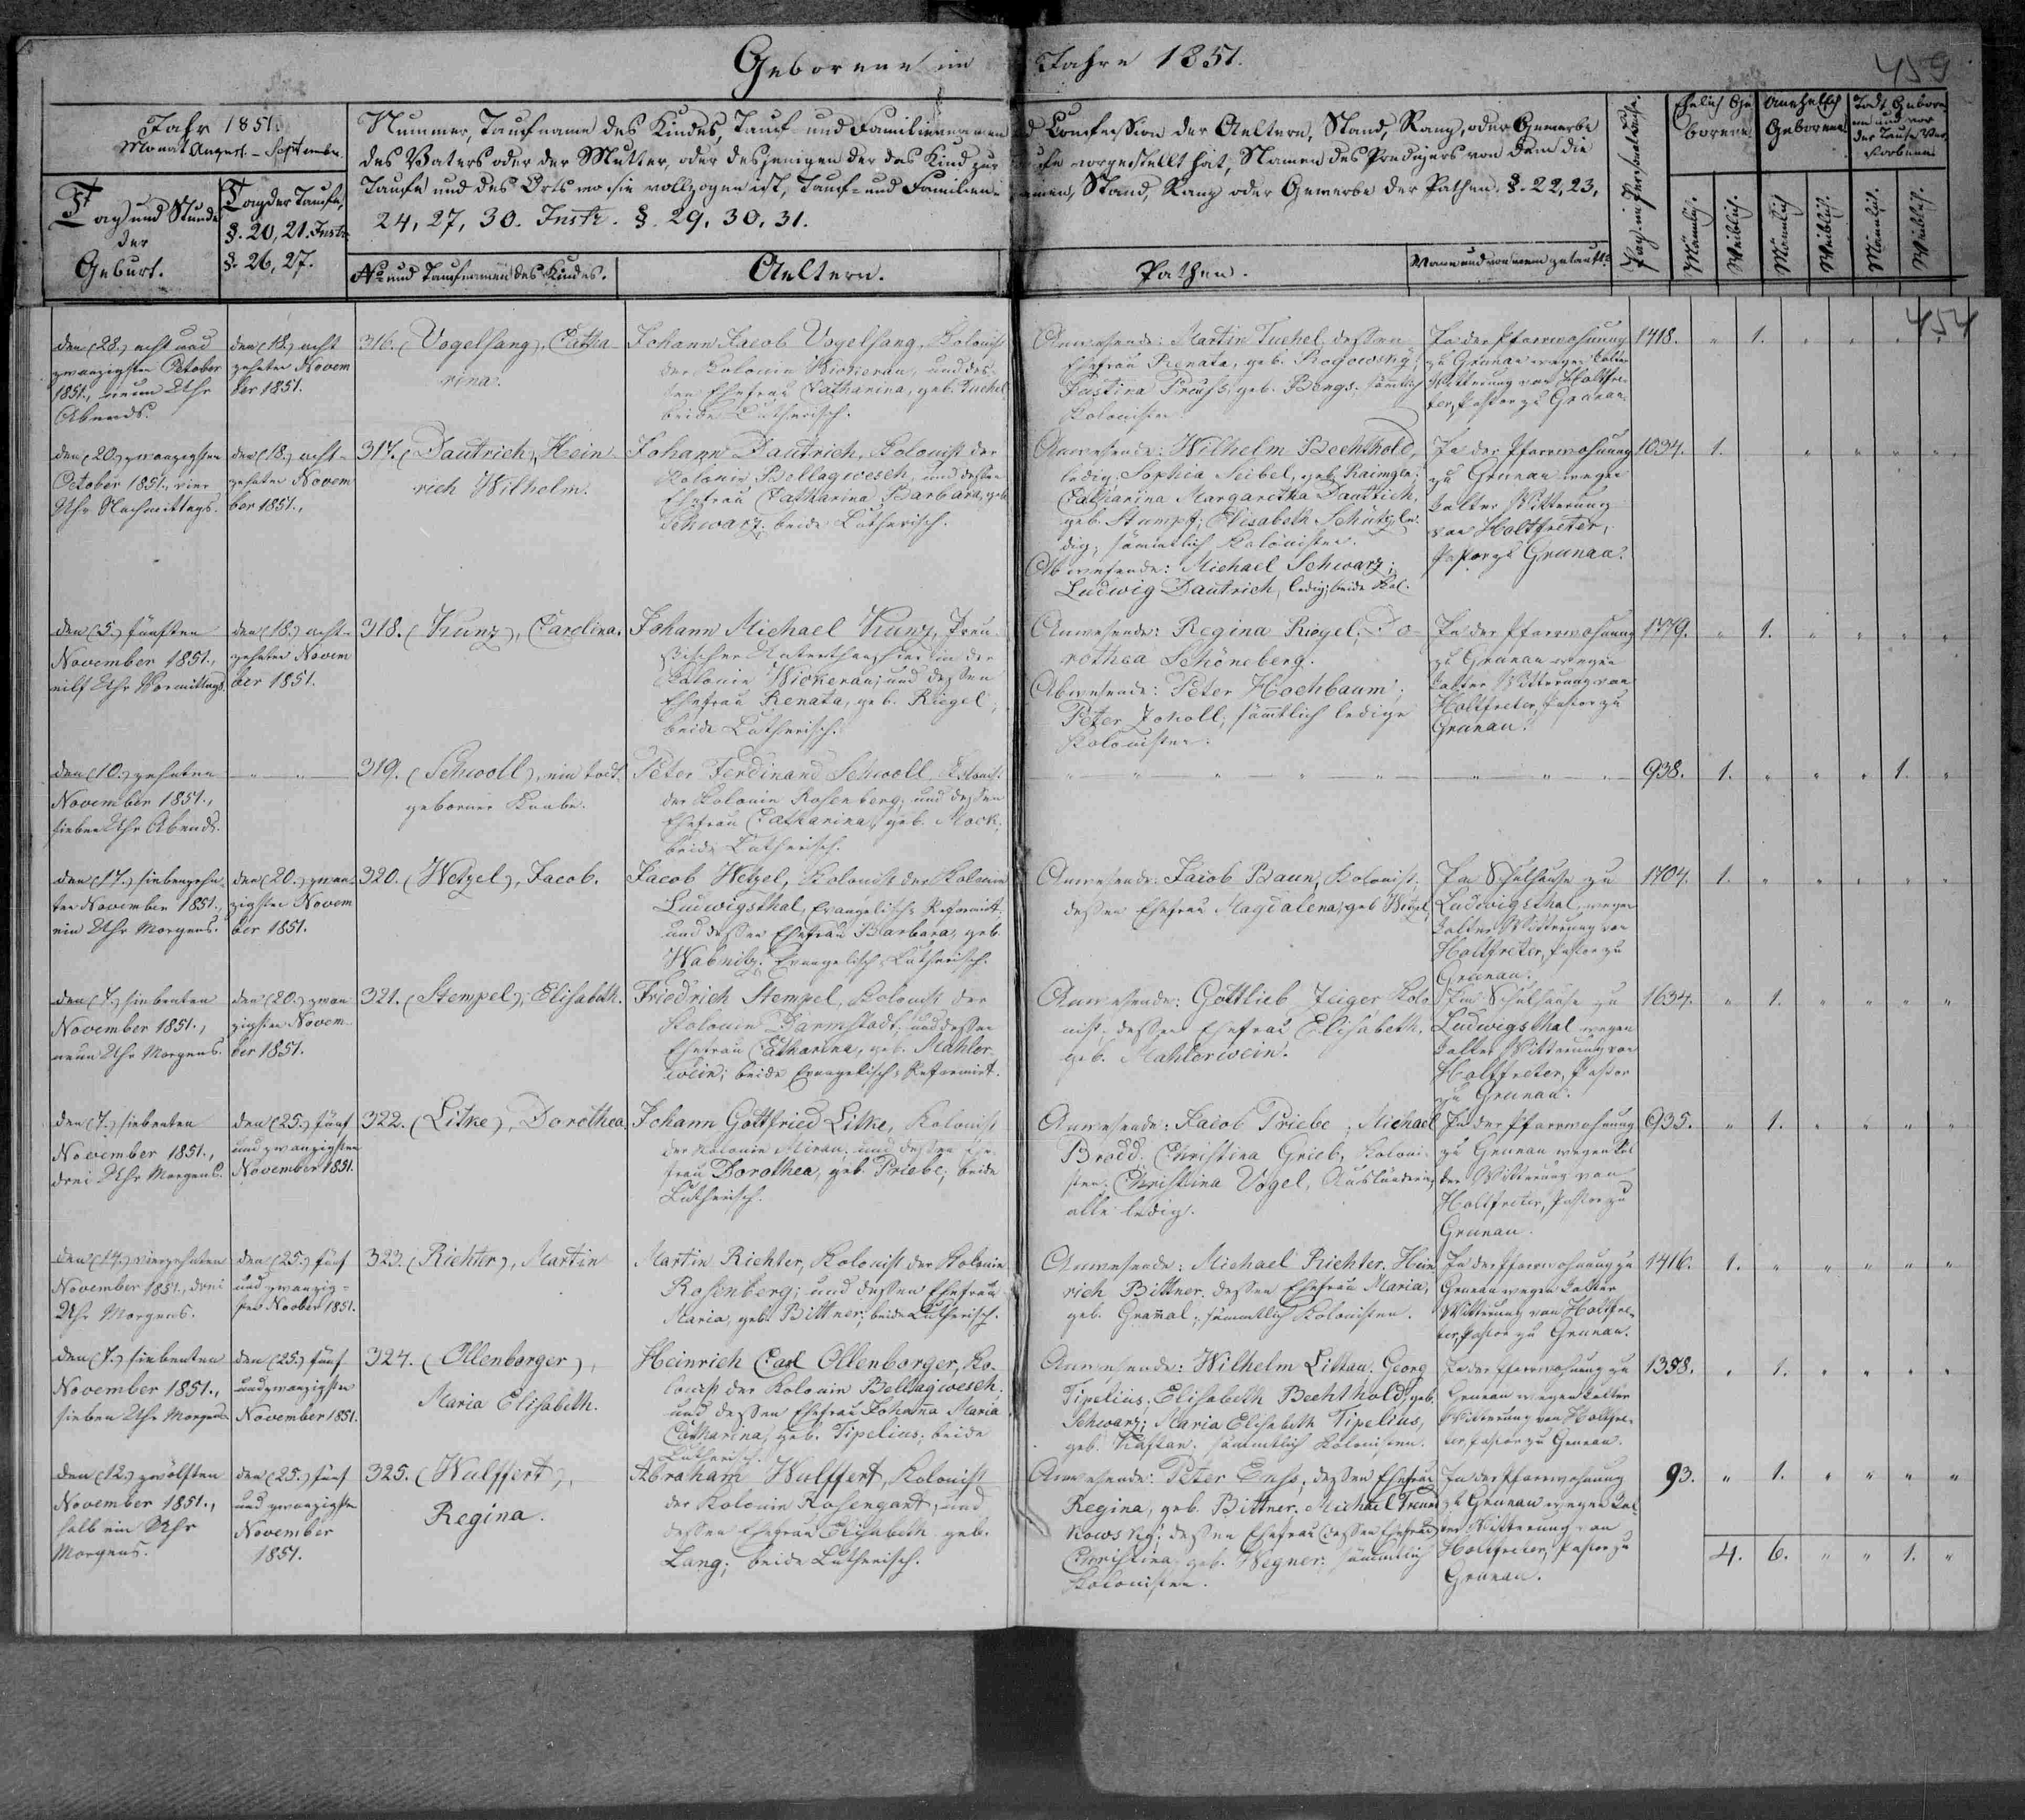 Geborene im Jahre 1851.
459
Jahr 1851.
Monat August - September
Tag und Stunde
der
Geburt.
Tag der Taufe,
§. 20, 21. Instr.
§. 26, 27.
Nummer, Taufname des Kindes, Tauf und Familiennamen
des Vaters oder der Mutter, oder desjenigen der das Kind zur
Taufe und des Orts wo sie vollzogen ist, Tauf- und Familien-
24, 27, 30. Instr. §. 29, 30, 31.
Confession der Aeltern, Stand, Rang, oder Gewerbe
vorgestellt hat, Namen des Predigers von dem die
namen, Stand, Rang oder Gewerbe der Pathen. §. 22, 23,
No und Taufnamen des Kindes.
Aeltern.
Pathen.
Wann und von wem getauft.
Pag. im Personalbuche.
Ehelich Ge
borene
Unehelich
Geborene
Todt Geborene
und vor
der Taufe Ver
storbene
Männlich.
Weiblich.
Männlich
Weiblich.
Männlich.
Weiblich.
454
den (28.) acht und
zwanzigsten October
1851., neun Uhr
Abends.
den (18.) acht
zehnten Novem
ber 1851.
316. (Vogelsang), Catha-
rina.
Johann Jacob Vogelsang, Kolonist
der Kolonie Wickerau, und des-
sen Ehefrau Catharina, geb. Tuchel
beide Lutherisch.
Anwesende: Martin Tuchel, dessen
Ehefrau Renata, geb. Rogowsky;
Justina Preuss, geb. Bergs; sämtlich
Kolonisten.
In der Pfarrwohnung
zu Grunau wegen kalter
Witterung von Holtfre-
ter, Pastor zu Grunau.
1418. " 1. " " " "
den (20.) zwanzigsten
October 1851., vier
Uhr Nachmittags.
den (18.) acht-
zehnten Novem
ber 1851.,
317. (Dautrich), Hein
rich Wilhelm.
Johann Dautrich, Kolonist der
Kolonie Bellagwesch, und dessen
Ehefrau Catharina Barbara, geb.
Schwarz; beide Lutherisch.
Anwesende: Wilhelm Bechthold,
ledig; Sophia Seibel, geb.
Catharina Margaretha Dautrich,
geb. Stumpf; Elisabeth Schütz, le-
dig; sämmtlich Kolonisten.
Abwesende: Michael Schwarz;
Ludwig Dautrich, ledig; beide Kol.
In der Pfarrwohnung
zu Grunau wegen
kalter Witterung
von Holtfreter,
Pastor zu Grunau.
1034. 1. " " " "
den (5.) fünften
November 1851.,
eilf Uhr Vormittags.
den (18.) acht-
zehnten Novem
ber 1851.
318. (Kunz), Carolina.
Johann Michael Kunz, Preu-
ßischer Unterthan, hier in der
Kolonie Wickerau; und dessen
Ehefrau Renata, geb. Riegel;
beide Lutherisch.
Anwesende: Regina Riegel; Do-
rothea Schöneberg.
Abwesende: Peter Hochbaum;
Peter ; sämtlich ledige
Kolonisten.
In der Pfarrwohnung
zu Grunau wegen
kalter Witterung von
Holtfreter, Pastor zu
Grunau.
1779. " 1. " " " "
den (10.) zehnten
November 1851.,
sieben Uhr Abends.
" "
319. (Schwoll), ein todt
geborner Knabe.
Peter Ferdinand Schwoll, Kolonist
der Kolonie Rosenberg; und dessen
Ehefrau Catharina, geb. Mock;
beide Lutherisch.
" " " " " " " "
938. 1. " " " 1. "
den (17.) siebenzehn-
ten November 1851.,
ein Uhr Morgens.
den (20.) zwan-
zigsten Novem
ber 1851.
320. (Wetzel), Jacob.
Jacob Wetzel, Kolonist der Kolonie
Ludwigsthal, Evangelisch-Reformirt,
und dessen Ehefrau Barbara, geb.
Wabnitz; Evangelisch-Lutherisch.
Anwesende: Jacob Baun, Kolonist;
dessen Ehefrau Magdalena, geb. Wetzel.
Im Schulhause zu
Ludwigsthal wegen
kalter Witterung von
Holtfreter, Pastor zu
Grunau.
1704. 1. " " " " "
den (7.) siebenten
November 1851.,
neun Uhr Morgens.
den (20.) zwan
zigsten Novem-
ber 1851.
321. (Stempel), Elisabeth.
Friedrich Stempel, Kolonist der
Kolonie Darmstadt; und dessen
Ehefrau Catharina, geb. Mahler-
wein; beide Evangelisch-Reformirt.
Anwesende: Gottlieb Jäger Kolo
nist; dessen Ehefrau Elisabeth,
geb. Mahlerwein.
Im Schulhause zu
Ludwigsthal wegen
kalter Witterung von
Holtfreter, Pastor
zu Grunau.
1634. " 1. " " " "
den (7.) siebenten
November 1851.,
drei Uhr Morgens.
den (25.) fünf
und zwanzigsten
November 1851.
322. (Litke), Dorothea.
Johann Gottfried Litke, Kolonist
der Kolonie Mirau; und dessen Ehe-
frau Dorothea, geb. Priebe; beide
Lutherisch.
Anwesende: Jacob Priebe; Michael
Christina Grieb, Koloni-
sten; Christina Vogel, Ausländerin;
alle ledig.
In der Pfarrwohnung
zu Grunau wegen kal
ter Witterung von
Holtfreter, Pastor zu
Grunau.
935. " 1. " " " "
den (14.) vierzehnten
November 1851., drei
Uhr Morgens.
den (25.) fünf
und zwanzig-
sten Novber 1851.
323. (Richter), Martin
Martin Richter, Kolonist der Kolonie
Rosenberg; und dessen Ehefrau
Maria, geb. Bittner; beide Lutherisch.
Anwesende: Michael Richter, Hein
rich Bittner, dessen Ehefrau Maria,
geb. Gram̄al; sämmtlich Kolonisten.
In der Pfarrwohnung zu
Grunau wegen kalter
Witterung von Holtfre-
ter, Pastor zu Grunau.
1416. 1. " " " " "
den (7.) siebenten
November 1851.,
sieben Uhr Morgens.
den (25.) fünf
und zwanzigsten
November 1851.
324. (Ollenborger),
Maria Elisabeth.
Heinrich Carl Ollenborger, Ko-
lonist der Kolonie Bellagwesch;
und dessen Ehefrau Johan̄a Maria
Catharina, geb. Tipelius; beide
Lutherisch.
Anwesende: Wilhelm Littau; Georg
Tipelius; Elisabeth Bechthold, geb.
Schwarz; Maria Elisabeth Tipelius,
geb. Kaftan; sämmtlich Kolonisten.
In der Pfarrwohnung zu
Grunau wegen kalter
Witterung von Holtfre-
ter, Pastor zu Grunau.
1358. " 1. " " " "
den (12.) zwölften
November 1851.,
halb ein Uhr
Morgens.
den (25.) fünf
und zwanzigsten
November
1851.
325. (Wulffert),
Regina.
Abraham Wulffert, Kolonist
der Kolonie Rosengart; und
dessen Ehefrau Elisabeth geb.
Lang; beide Lutherisch.
Anwesende: Peter Enss, dessen Ehefrau
Regina, geb. Bittner; Michael
kowsky; dessen Ehefrau (dessen Ehefrau)
Christina, geb. Wegner; sämmtlich
Kolonisten.
In der Pfarrwohnung
zu Grunau wegen kal-
ter Witterung von
Holtfreter, Pastor zu
Grunau.
93. " 1. " " " "
4. 6. " " 1. "